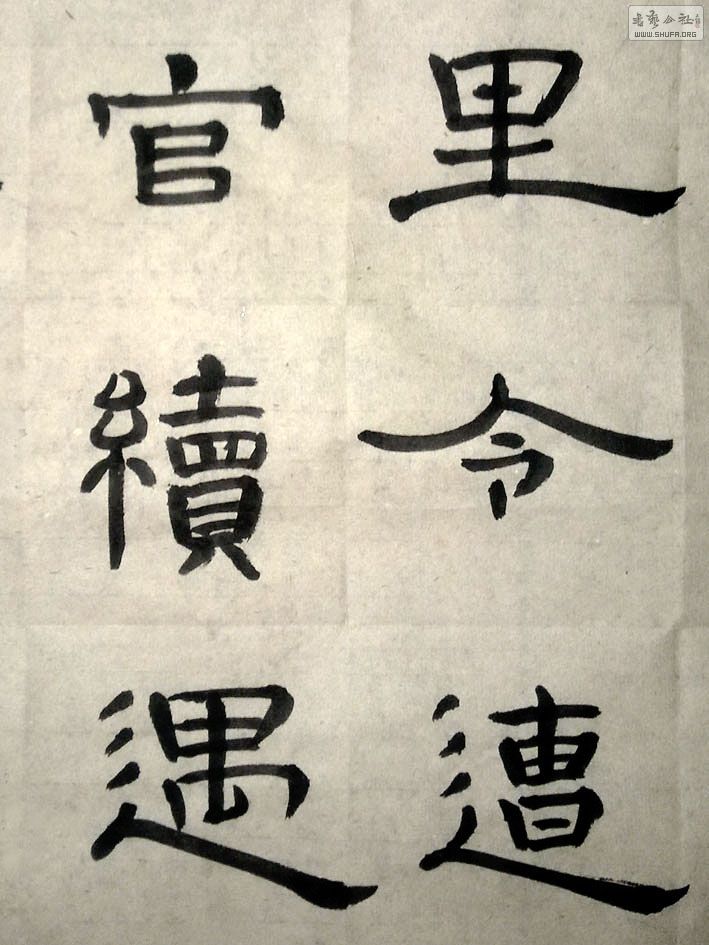 里令遭
官續遇
書藝公社
WWW.SHUFA.ORG